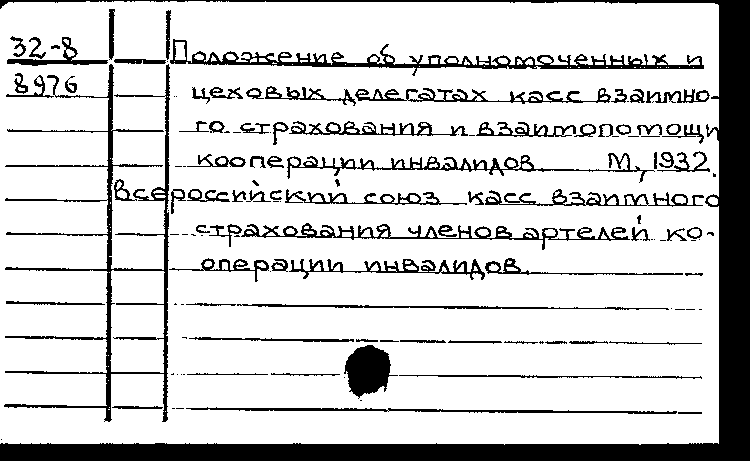 32-8 Положение об уполномоченных и
8976 цеховых делегатах касс взаимно-
го страхования и взаимопомощи
кооперации инвалидов М., 1932.
Всероссийский союз касс взаимного
страхования членов артелей ко-
операции инвалидов.